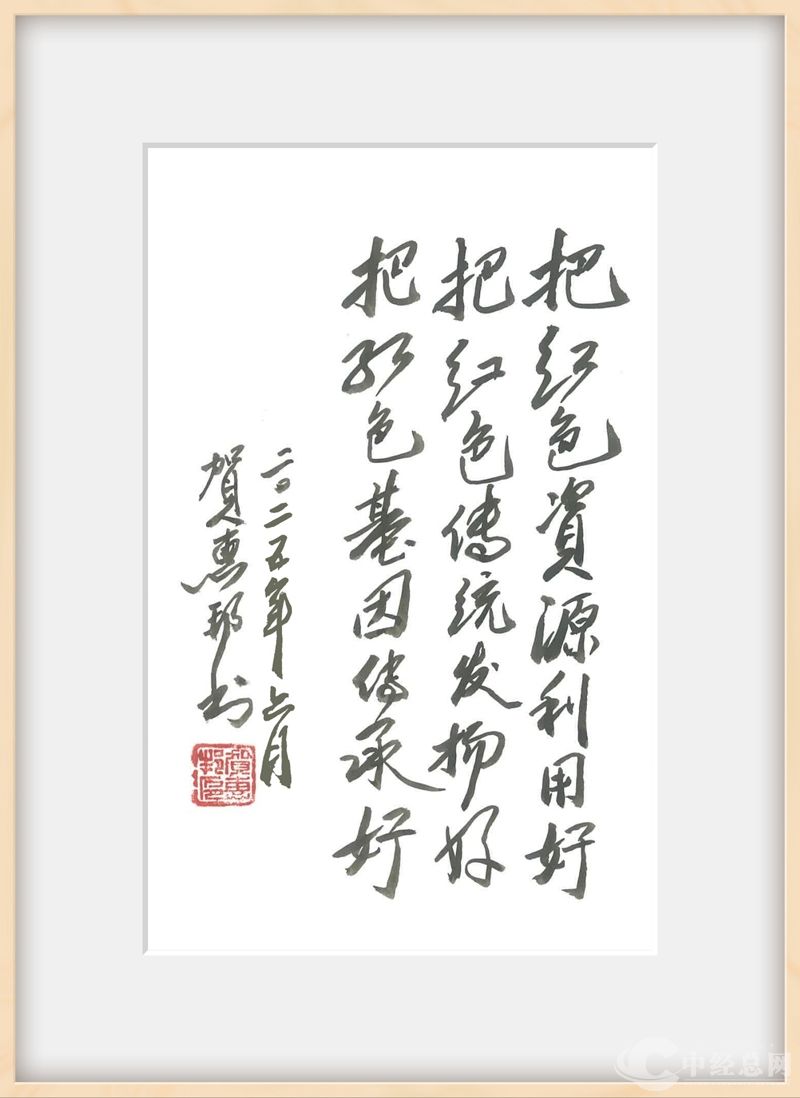 把红色資源利用好
把红色傳統发揚好
把红色基因傳承好
二〇二五年六月
賀惠邦书
賀惠邦印
中经总网